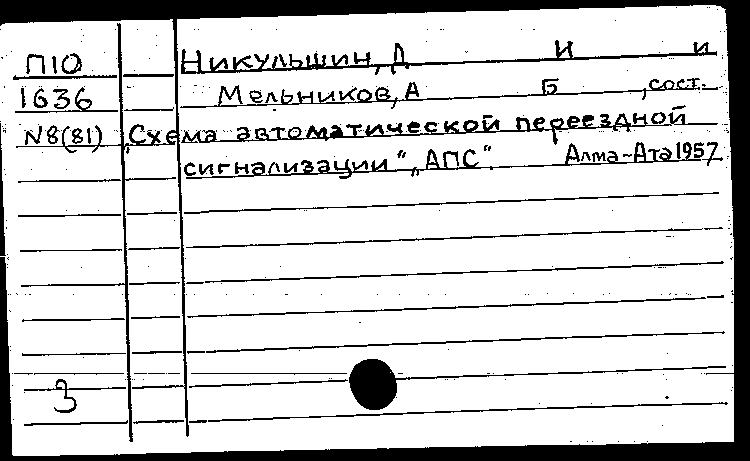 П10 Никульшин, Д И и
1636 Мельников, А Б , сост.
N8(81) „Схема автоматической переездной
сигнализации“ „АПС“. Алма-Ата 1957
3